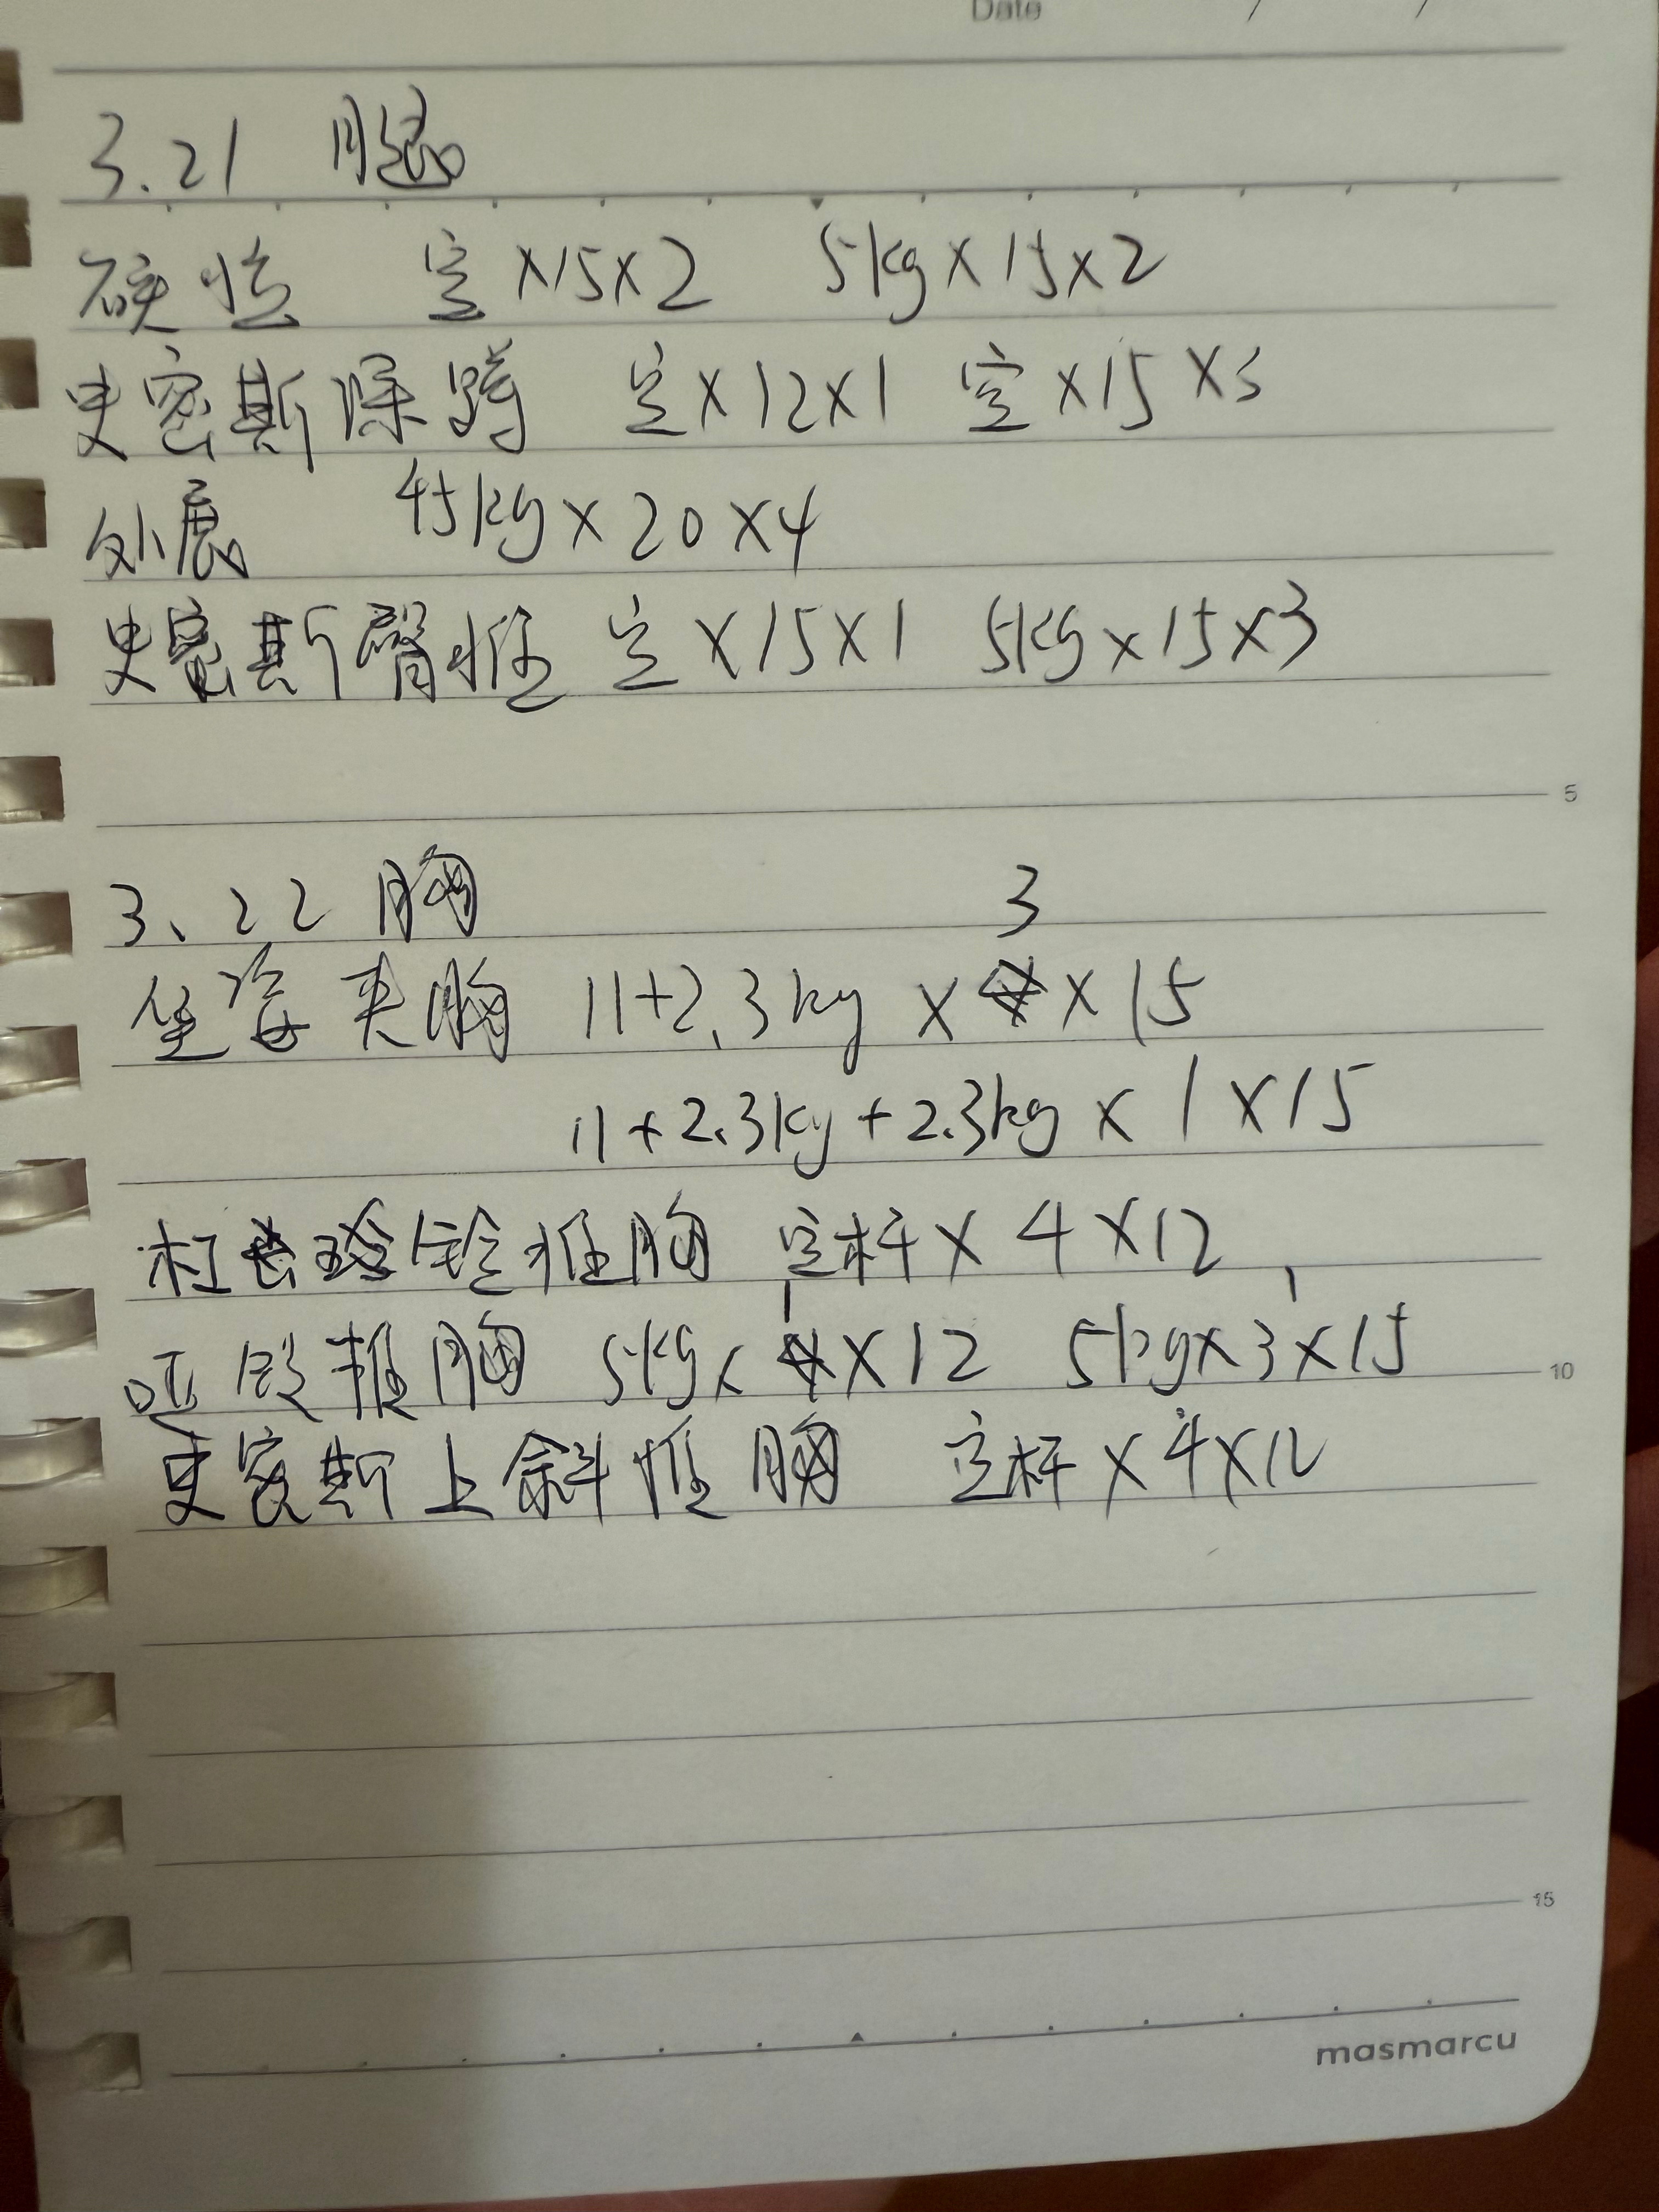 Date / /
3.21 腿
硬拉 空×15×2 5kg×15×2
史密斯深蹲 空×12×1 空×15×3
外展 45kg×20×4
史密斯臀推 空×15×1 5kg×15×3
5
3、22 胸
3
坐姿夹胸 11+2.3kg × × 15
11+2.3kg+2.3kg×1×15
杠铃推胸 空杆×4×12
1
哑铃推胸 5kg× ×12 5kg×3×15
10
史密斯上斜推胸 空杆×4×12
15
masmarcu